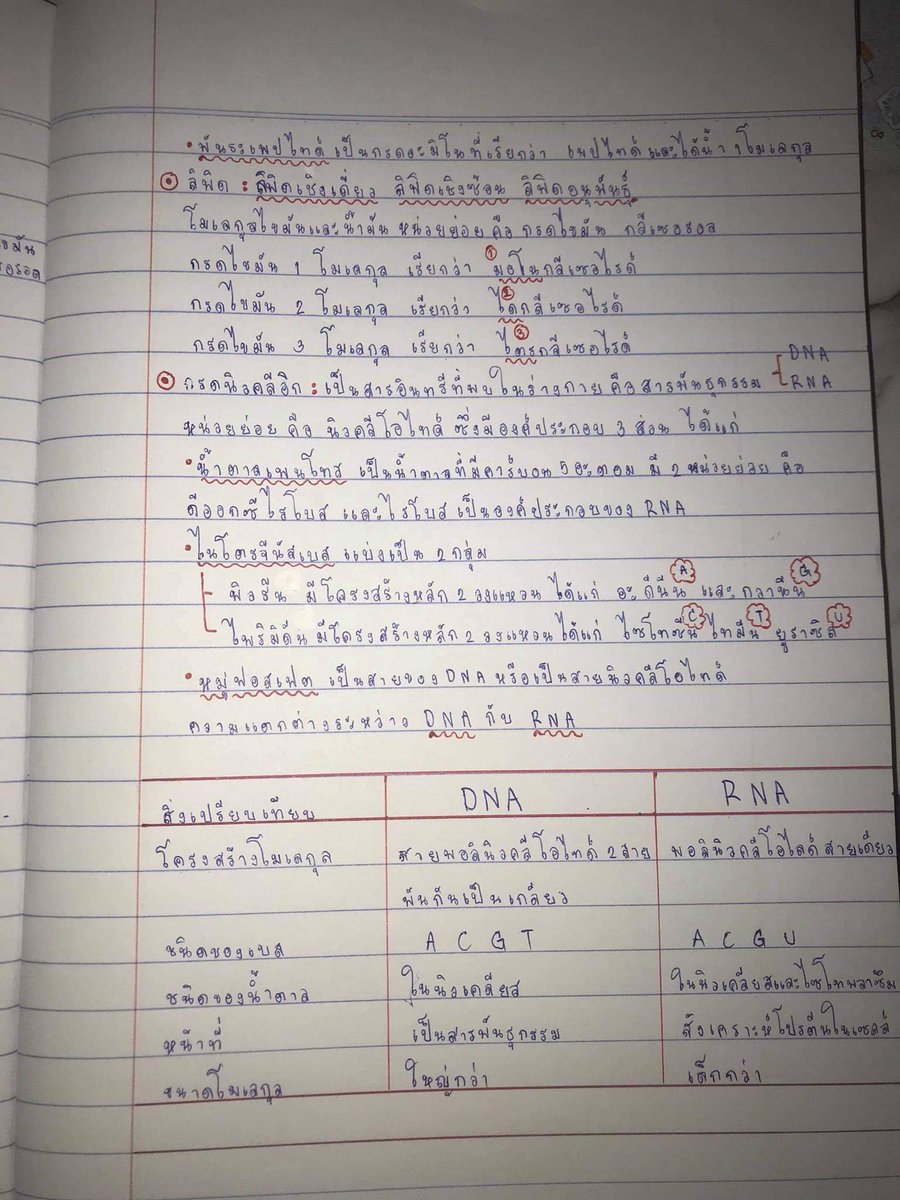 • พันธะเพปไทด์ เป็นกรดอะมิโนที่เรียกว่า เพปไทด์และได้น้ำ 1 โมเลกุล
ลิพิด : ลิพิดเชิงเดี่ยว ลิพิดเชิงซ้อน ลิพิดอนุพันธุ์
โมเลกุลไขมันและน้ำมัน หน่วยย่อย คือ กรดไขมัน กลีเซอรอล
กรดไขมัน 1 โมเลกุล เรียกว่า ① มอโนกลีเซอไรด์
กรดไขมัน 2 โมเลกุล เรียกว่า ② ไดกลีเซอไรด์
กรดไขมัน 3 โมเลกุล เรียกว่า ③ ไตรกลีเซอไรด์
กรดนิวคลีอิก : เป็นสารอินทรีที่พบในร่างกาย คือสารพันธุกรรม DNA RNA
หน่วยย่อย คือ นิวคลีโอไทด์ ซึ่งมีองค์ประกอบ 3 ส่วน ได้แก่
• น้ำตาลเพนโทส เป็นน้ำตาลที่มีคาร์บอน 5 อะตอม มี 2 หน่วยย่อย คือ
ดีออกซีไรโบส และไรโบส เป็นองค์ประกอบของ RNA
• ไนโตรจีนัสเบส แบ่งเป็น 2 กลุ่ม
พิวรีน มีโครงสร้างหลัก 2 วงแหวน ได้แก่ อะดีนีน A และ กวานีน G
ไพริมิดีน มีโครงสร้างหลัก 2 วงแหวนได้แก่ ไซโทซีน C ไทมีน T ยูราซิล U
• หมู่ฟอสเฟต เป็นสายของ DNA หรือเป็นสายนิวคลีโอไทด์
ความแตกต่างระหว่าง DNA กับ RNA
สิ่งเปรียบเทียบ DNA RNA
โครงสร้างโมเลกุล สายพอลินิวคลีโอไทด์ 2 สาย พอลินิวคลีโอไลด์ สายเดียว
พันกันเป็นเกลียว
ชนิดของเบส A C G T A C G U
ชนิดของน้ำตาล ในนิวเคลียส ในนิวเคลียสและไซโทพลาซึม
หน้าที่ เป็นสารพันธุกรรม สังเคราะห์โปรตีนในเซลล์
ขนาดโมเลกุล ใหญ่กว่า เล็กกว่า